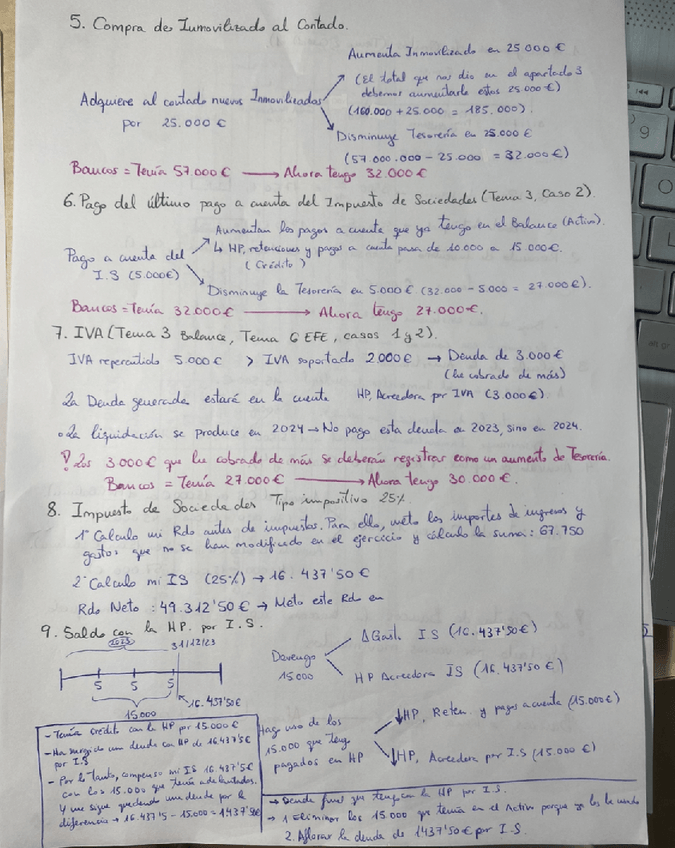 5. Compra de Inmovilizado al Contado.
Aumenta Inmovilizado en 25.000 €
(El total que nos dio en el apartado 3
debemos aumentarle estos 25.000 €)
(160.000 + 25.000 = 185.000).
Adquiere al contado nuevos Inmovilizados
por 25.000 €
Disminuye Tesorería en 25.000 €
(57.000.000 - 25.000 = 32.000 €)
Bancos = Tenía 57.000 € → Ahora tengo 32.000 €
6. Pago del último pago a cuenta del Impuesto de Sociedades (Tema 3, Caso 2).
Aumentan los pagos a cuenta que ya tengo en el Balance (Activo).
↳ HP, retenciones y pagos a cuenta pasa de 10.000 a 15.000 €.
(Crédito)
Pago a cuenta del
I.S (5.000 €)
Disminuye la Tesorería en 5.000 € (32.000 - 5.000 = 27.000 €).
Bancos = Tenía 32.000 € → Ahora tengo 27.000 €.
7. IVA (Tema 3 Balance, Tema 6 EFE, casos 1 y 2).
IVA repercutido 5.000 € > IVA soportado 2.000 € → Deuda de 3.000 €
(he cobrado de más)
La Deuda generada estará en la cuenta HP, Acreedora por IVA (3.000 €).
La liquidación se produce en 2024 → No pago esta deuda en 2023, sino en 2024.
! Los 3.000 € que he cobrado de más se deberán registrar como un aumento de Tesorería.
Bancos = Tenía 27.000 € → Ahora tengo 30.000 €.
8. Impuesto de Sociedades Tipo impositivo 25%
1º Calculo mi Rdo antes de impuestos. Para ello, meto los importes de ingresos y
gastos que no se han modificado en el ejercicio y cálculo la suma: 67.750
2º Calculo mi IS (25%) → 16.437'50 €
Rdo Neto: 49.312'50 € → Meto este Rdo en
9. Saldo con la HP. por I.S.
2023
31/12/23
5 5 5
15.000
16.437'50 €
Devengo
15000
Δ Gasto IS (16.437'50 €)
HP Acreedora IS (16.437'50 €)
Hago uso de los
15.000 que tengo
pagados en HP
↓HP, Reten. y pagos a cuenta (15.000 €)
↓HP, Acreedora por I.S (15.000 €)
- Tenía crédito con la HP por 15.000 €
- Ha surgido una deuda con HP de 16.437'5 €
por I.S
- Por lo tanto, compenso mi IS 16.437'5 €
con los 15.000 que tenía adelantados.
Y me sigue quedando una deuda por la
diferencia → 16.437'5 - 15.000 = 1437'50 €
→ Deuda final que tengo con la HP por I.S.
→ 1. Eliminar los 15.000 que tenía en el Activo porque ya los he usado
2. Aflorar la deuda de 1437'50 € por I.S.